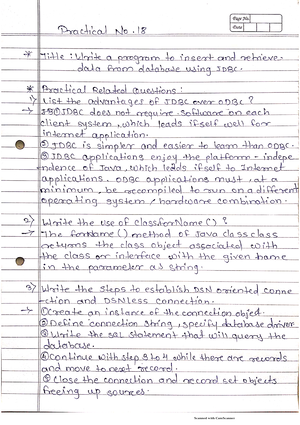 Page No.
Date
Practical No. 18
* Title : Write a program to insert and retrieve
data from database using JDBC.
* Practical Related Questions :
1) List the advantages of JDBC over ODBC ?
→ ① JDBC does not require software on each
client system, which leads itself well for
internet application.
② JDBC is simpler and easier to learn than ODBC.
③ JDBC applications enjoy the platform - indepe-
ndence of Java, which leads itself to Internet
applications. ODBC applications must, at a
minimum, be recompiled to run on a different
operating system / hardware combination.
2) Write the use of class forName() ?
→ The forName() method of Java class class
returns the class object associated with
the class or interface with the given name
in the parameter as string.
3) Write the steps to establish DSN oriented conne
-ction and DSNless connection.
→ ① Create an instance of the connection object.
② Define connection string, specify database driver
③ Write the SQL statement that will query the
database.
④ Continue with step 3 to 4 while there are records
and move to next record.
⑤ Close the connection and record set objects
freeing up sources.
Scanned with CamScanner